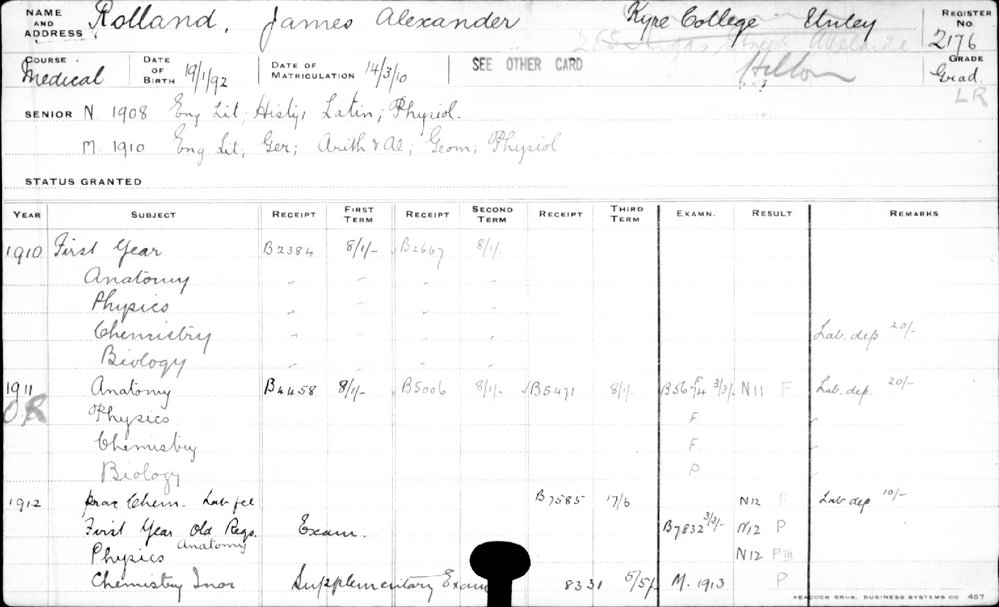 NAME AND ADDRESS Rolland, James Alexander Kyre College Unley REGISTER No. 2176
Adelaide
COURSE Medical DATE OF BIRTH 19/1/92 DATE OF MATRICULATION 14/3/10 SEE OTHER CARD Hilton GRADE Grad.
LR
SENIOR N. 1908 Eng Lit; Histy; Latin; Physiol.
M. 1910 Eng Lit; Ger; Arith & Al; Geom; Physiol
STATUS GRANTED
YEAR SUBJECT RECEIPT FIRST TERM RECEIPT SECOND TERM RECEIPT THIRD TERM EXAMN. RESULT REMARKS
1910 First Year B2384 8/1/- B2667 8/1/-
Anatomy " " " "
Physics " " " "
Chemistry " " " " Lab. dep 20/-
Biology " " " "
1911 Anatomy B4458 8/1/- B5006 8/1/- B5471 8/1/- 3/3/- N11 F Lab. dep. 20/-
OR Physics F
Chemistry F
Biology P
1912 prac Chem. Lab fee B7585 17/6 N12 F Lab dep 10/-
First Year Old Regs. Exam. B7832 3/3/- N12 P
Physics Anatomy N12 P III
Chemistry Inor Supplementary Exam 8331 5/5/- M. 1913 P
PEACOCK BROS. BUSINESS SYSTEMS CO 457